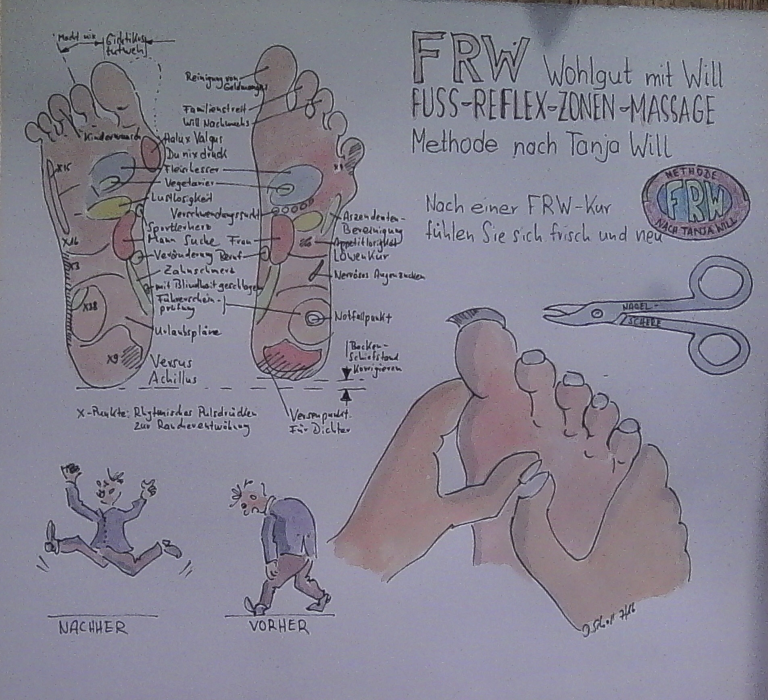 FRW Wohlgut mit Will
FUSS-REFLEX-ZONEN-MASSAGE
Methode nach Tanja Will
Nach einer FRW-Kur
fühlen Sie sich frisch und neu
METHODE
FRW
NACH TANJA WILL
NAGEL-
SCHERE
Macht nix
Reinigung von
Geldmangel
Familienstreit
Will Nachwuchs
Kinderwunsch
Halux Valgus
Du nix druck
Fleischesser
Vegetarier
Lustlosigkeit
Verschwendungssucht
Sportlerherz
Mann Suche Frau
Veränderung Beruf
Zahnschmerz
mit Blindheit geschlagen
Führerschein-
prüfung
Urlaubspläne
Versus
Achillus
X15
X16
X3
X38
X9
Aszendenten-
Bereinigung
Appetitlosigkeit
Löwenkur
Nervöses Augenzucken
Notfallpunkt
Becken-
Schiefstand
Korrigieren
Versenpunkt
Für Dichter
X-Punkte: Rhytmisches Pulsdrücken
zur Raucherentwöhnung
NACHHER
VORHER